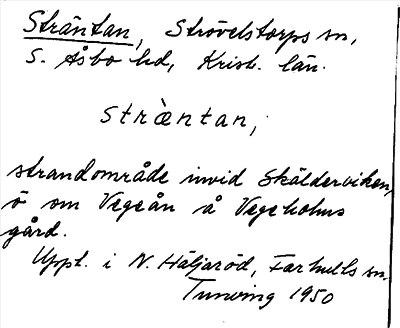 Sträntan, Strövelstorps sn,
S. Åsbo hd, Krist. län.
stràentan,
strandområde invid Skälderviken,
ö om Vegeån å Vegeholms
gård.
Uppt. i N. Häljaröd, Farhults sn.
Tuneving 1950